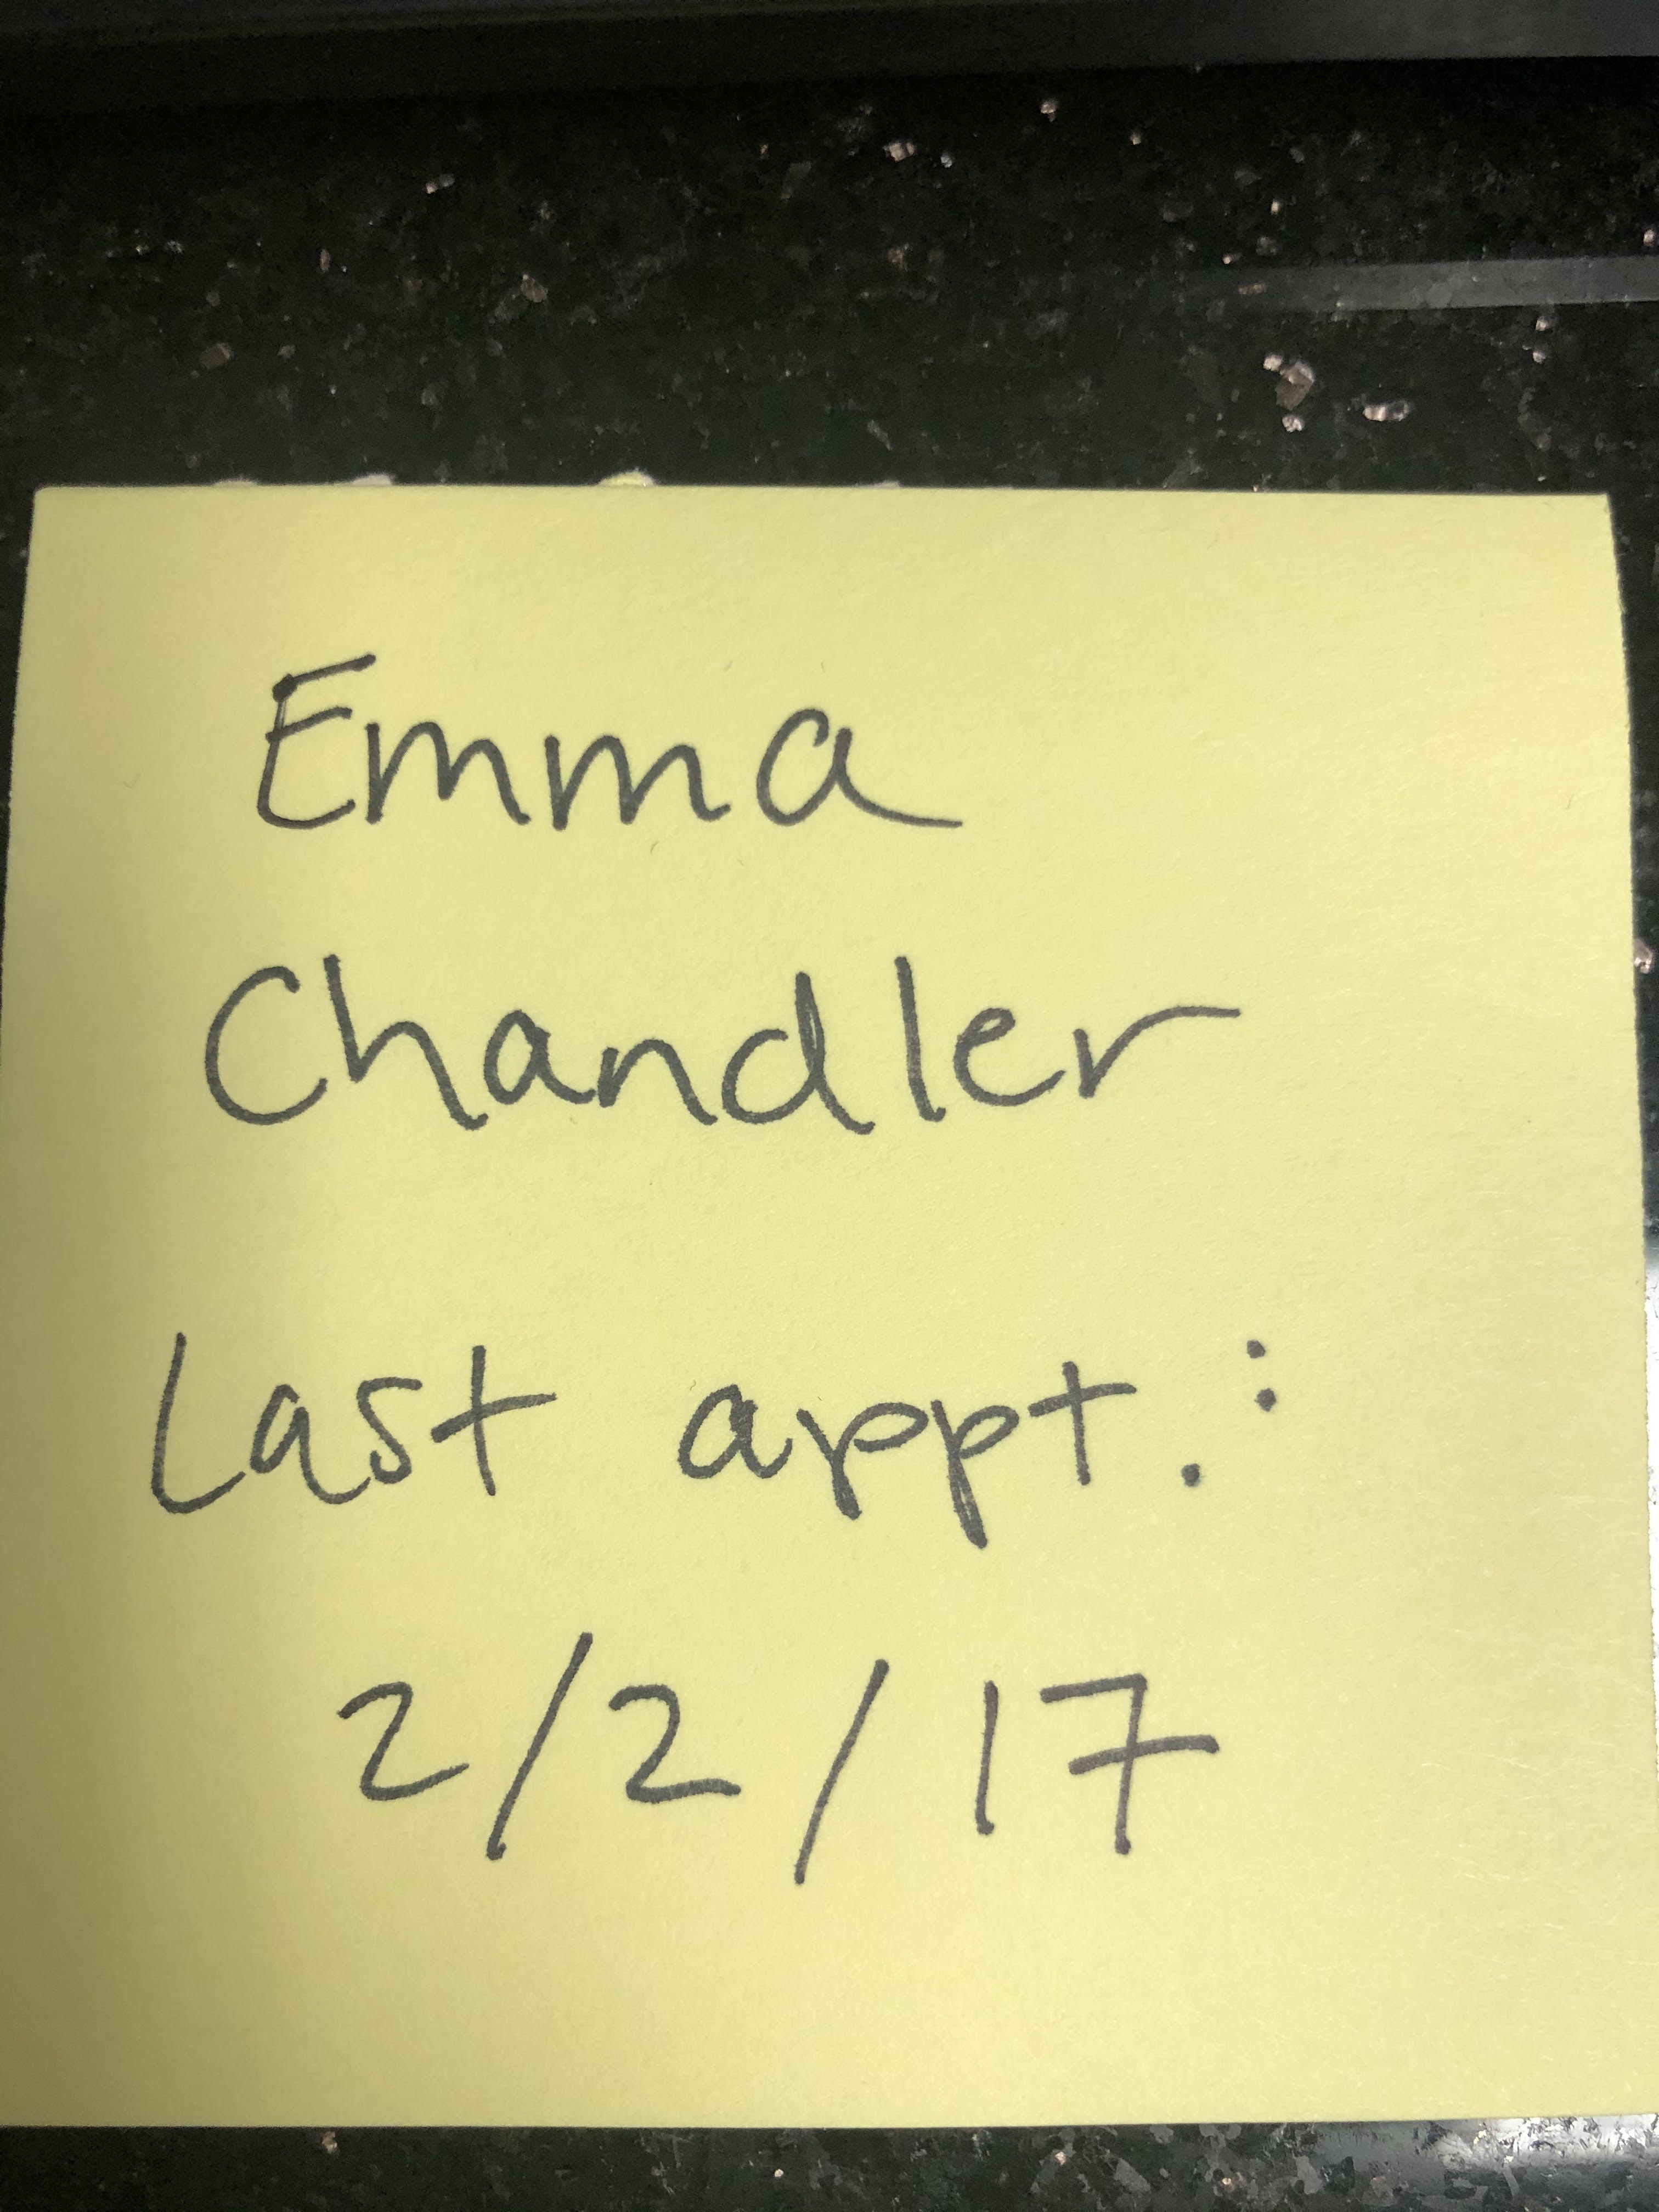 Emma
Chandler
Last appt.:
2/2/17